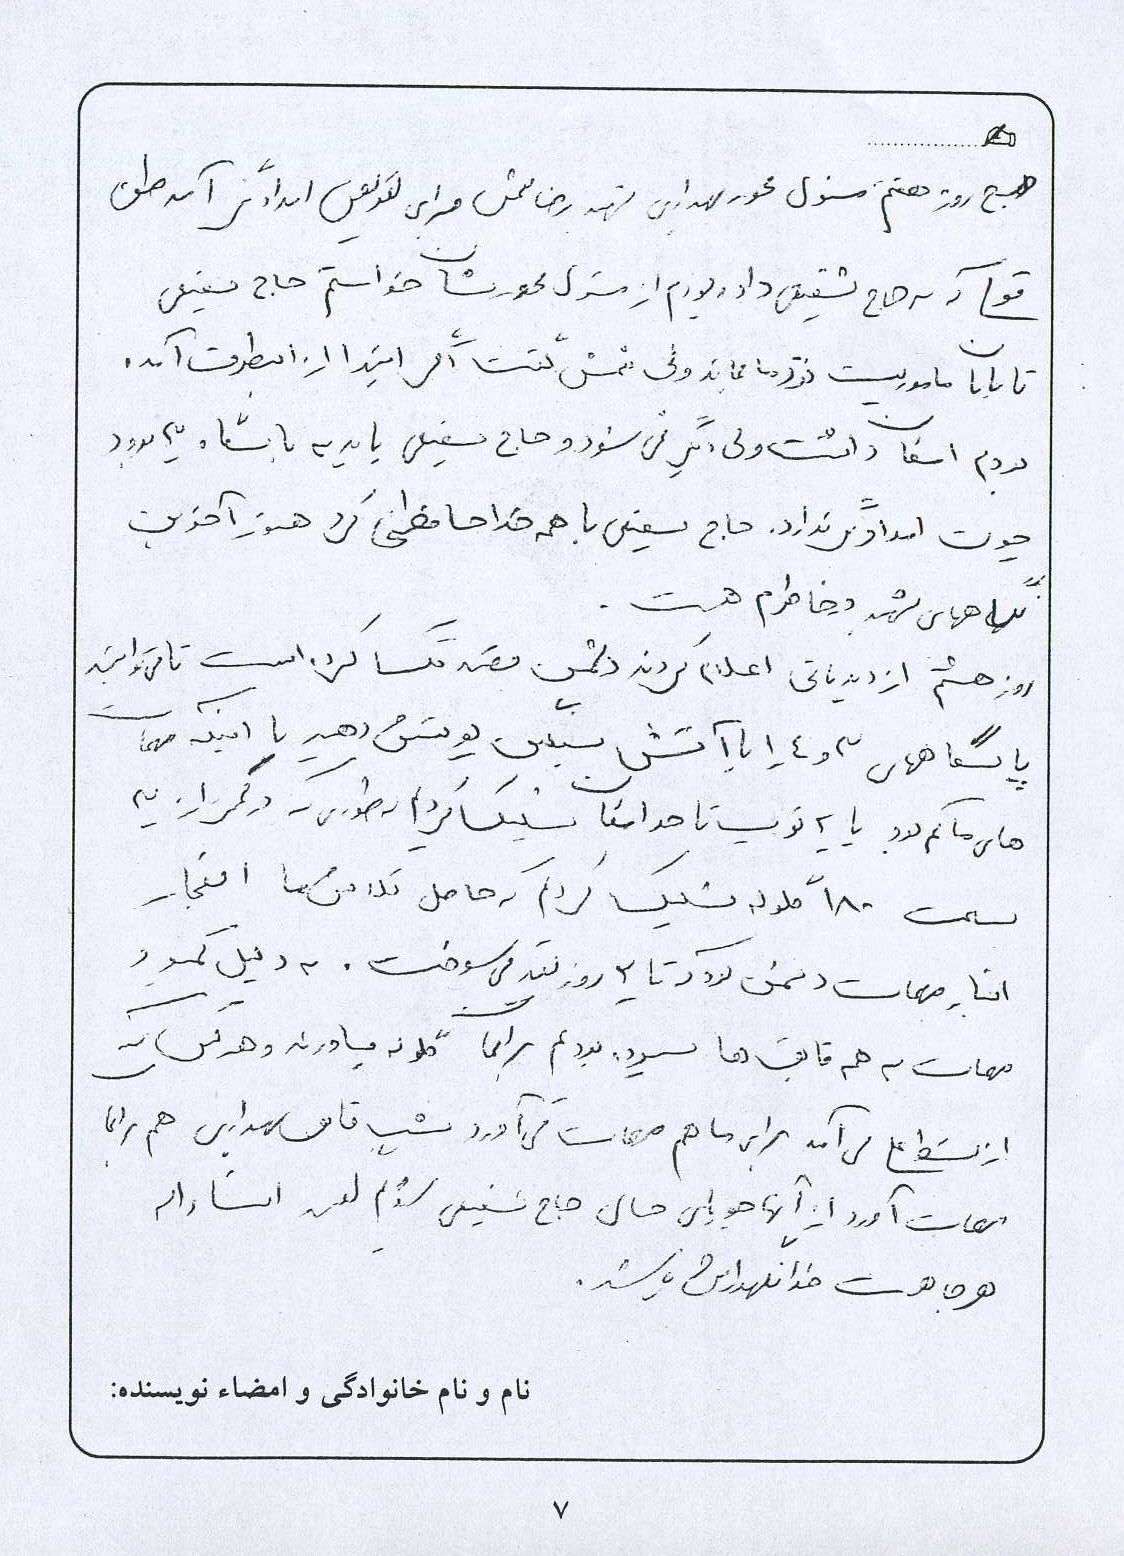 صبح روز هفتم مسئول محور بهداری شهید رضا شمس برای تعویض امدادگر آمد طبق
قولی که به حاج شفیعی داده بودم از مسئول محورشان خواستم حاج شفیعی
تا پایان ماموریت نزد ما بماند ولی شمس گفت اگر ابتدا از اینطرف آمده
بودم امکان داشت ولی دیگر نمی شود و حاج شفیعی باید به پاسگاه ۳ برود
چون امدادگر ندارد. حاج شفیعی با همه خداحافظی کرد هنوز آخرین
نگاههای شهید در خاطرم هست.
روز هشتم از دیدبانی اعلام کردند دشمن قصد تک کرده است تا می توانید
پاسگاههای ۳ و ٤ را با آتش سنگین پوشش دهید با اینکه مهمات
های ما کم بود با ۲ توپ تا حد امکان شلیک کردیم بطوری که در کمتر از
سمت ۱۸۰ گلوله شلیک کردیم که حاصل تلاش ما انفجار
انبار مهمات دشمن بود که تا ۲ روز می سوخت. به دلیل کمبود
مهمات به همه قایق ها سپرده بودیم برایمان گلوله بیاورند و هر کس که
از شط علی می آمد برای ما هم مهمات می آورد شب قایق بهداری هم برایمان
مهمات آورد از آنها جویای حال حاج شفیعی شدم گفتند انشاءالله
هر جا هست خدا نگهدارش باشد.
نام و نام خانوادگی و امضاء نویسنده:
۷